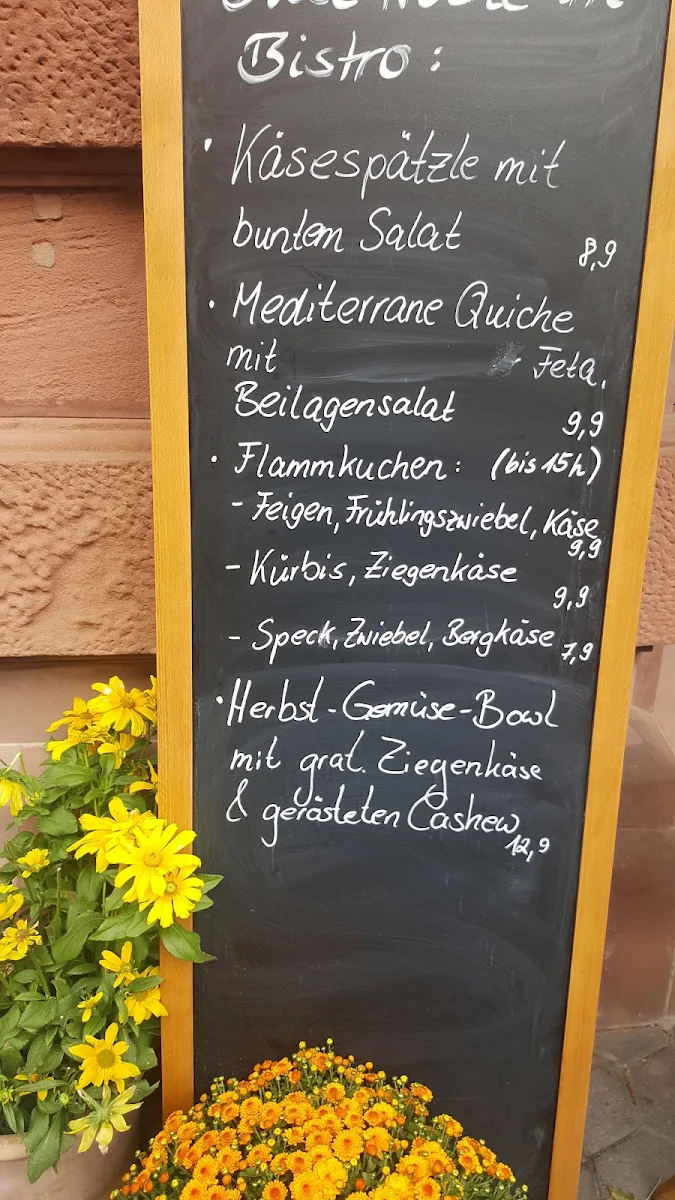 Bistro :
· Käsespätzle mit
buntem Salat
8,9
· Mediterrane Quiche
mit Feta,
Beilagensalat
9,9
· Flammkuchen: (bis 15h)
- Feigen, Frühlingszwiebel, Käse
9,9
- Kürbis, Ziegenkäse
9,9
- Speck, Zwiebel, Bergkäse 7,9
· Herbst-Gemüse-Bowl
mit grat. Ziegenkäse
& gerästeten Cashew
12,9